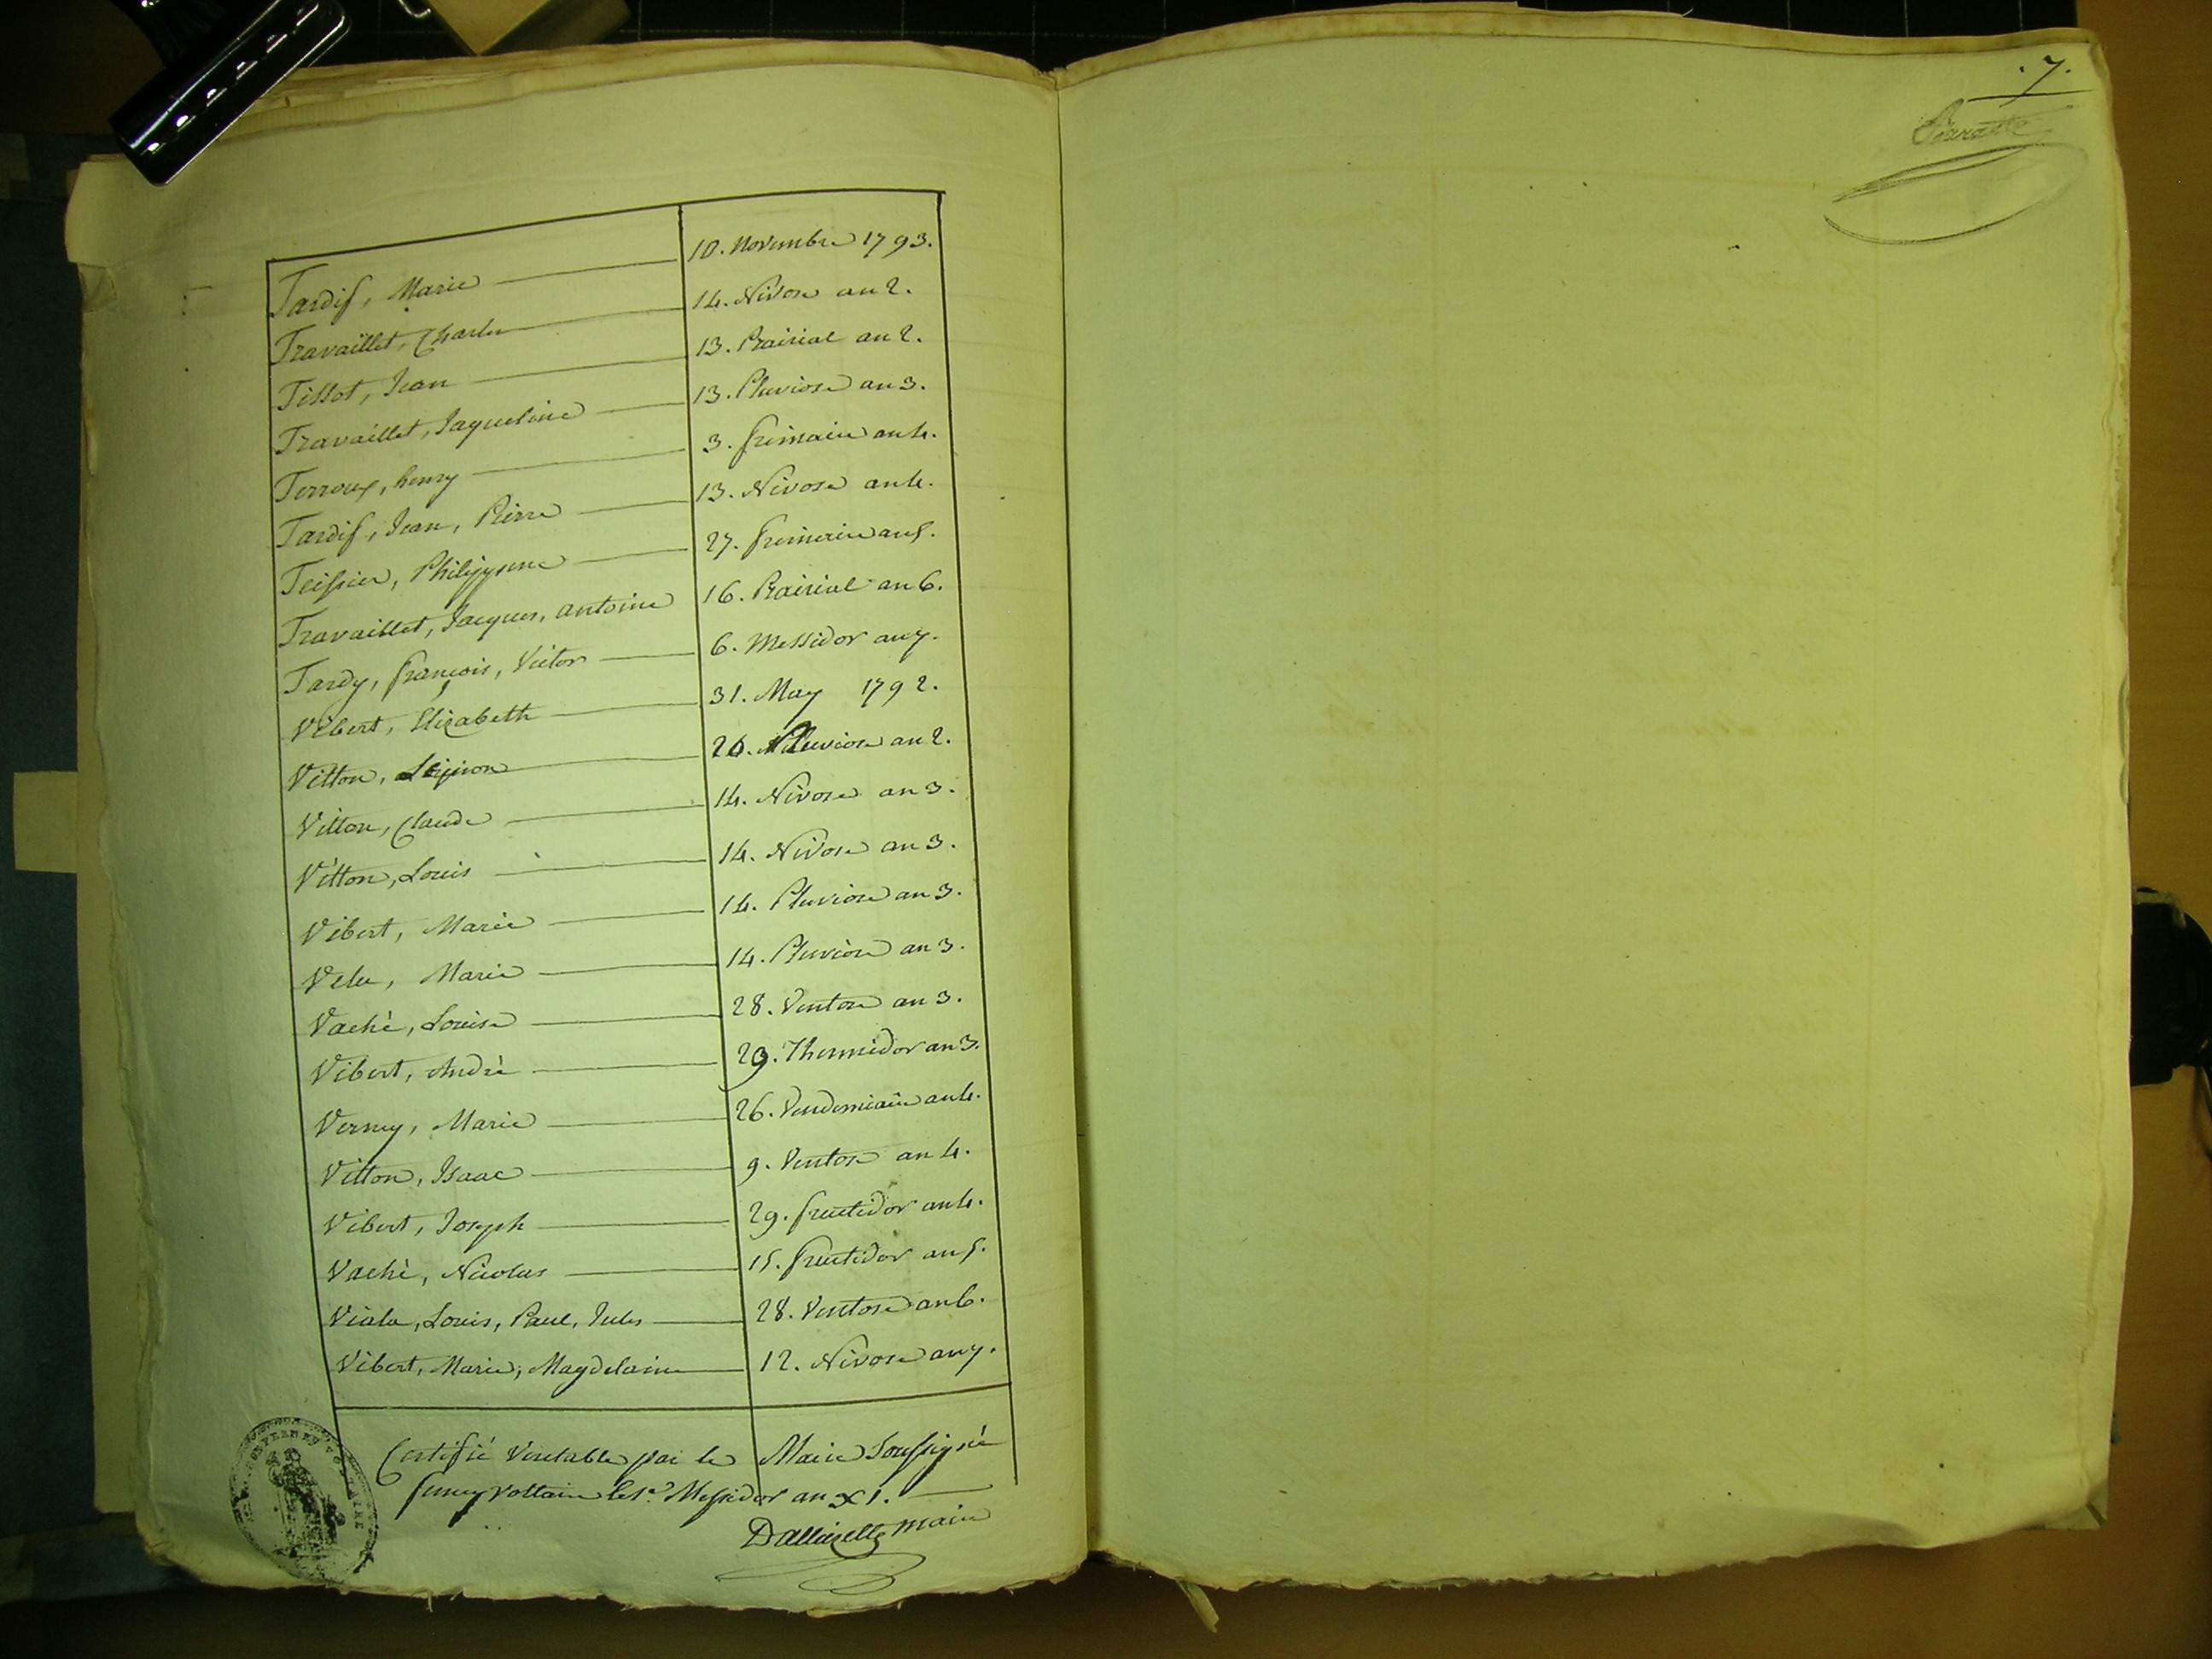 Tardif, Marie 10. Novembre 1793.
Travaillet, Charles 14. Nivose an 2.
Tissot, Jean 13. Prairial an 2.
Travaillet, Jaqueline 13. Pluviose an 3.
Terroux, henry 3. frimaire an 4.
Tardif, Jean, Pierre 13. Nivose an 4.
Teissier, Philippine 27. frimaire an 5.
Travaillet, Jacques, antoine 16. Prairial an 6.
Tardy, françois, Victor 6. Messidor an 7.
Vibert, Elizabeth 31. May 1792.
Vitton, 26. Pluviose an 2.
Vitton, Claude 14. Nivose an 3.
Vitton, Louis 14. Nivose an 3.
Vibert, Marie 14. Pluviose an 3.
Velu, Marie 14. Pluviose an 3.
Vaché, Louise 28. Ventose an 3.
Vibert, André 29. Thermidor an 3.
Verney, Marie 26. Vendemiaire an 4.
Vitton, Isaac 9. Ventose an 4.
Vibert, Joseph 29. fructidor an 4.
Vaché, Nicolas 15. fructidor an 5.
Viala, Louis, Paul, Jules 28. Ventose an 6.
Vibert, Marie, Magdelaine 12. Nivose an 7.
Certifié Veritable par le Maire Soussigné
ferney voltaire le 1er Messidor an XI.
maire
. 7.